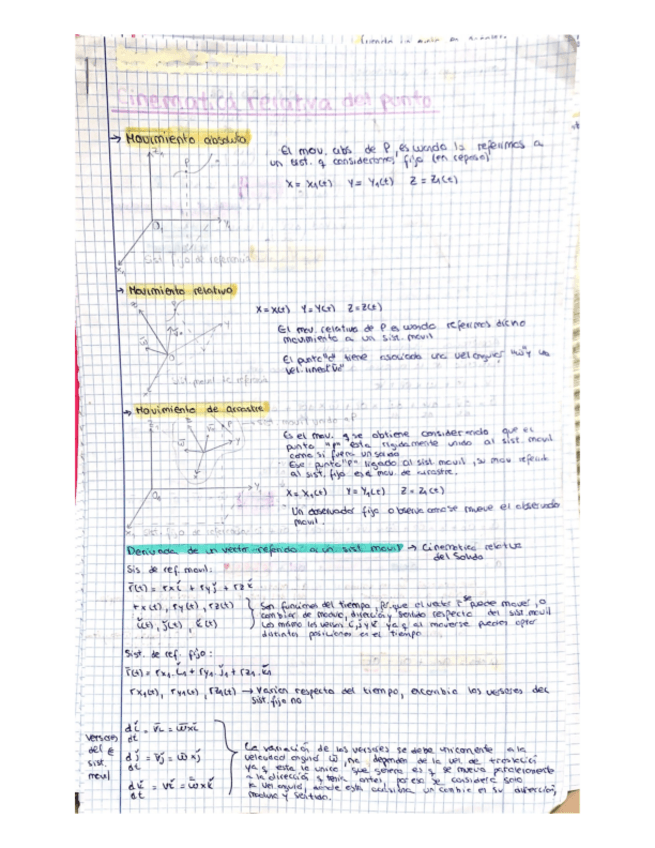 Cinematica relativa del punto
→ Movimiento absoluto
El mov. abs de P, es cuando lo referimos a
un sist. q consideramos fijo (en reposo)
X = X₁(t) Y = Y₁(t) Z = Z₁(t)
Sist. fijo de referencia
→ Movimiento relativo
X = X(t) Y = Y(t) Z = Z(t)
El mov. relativo de P es cuando referimos dicho
movimiento a un sist. movil
El punto "O" tiene asociado una vel angular "ω" y una
vel. lineal
Sist movil de referencia
→ Movimiento de arrastre
Es el mov. q se obtiene considerando que el
punto "P" esta rigidamente unido al sist. movil
como si fuera un solido
Ese punto "P" ligado al sist. movil, su mov referido
al sist. fijo es el mov. de arrastre.
X = X₁(t) Y = Y₁(t) Z = Z₁(t)
Un observador fijo observa como se mueve el observador
movil.
Sist fijo de referencia
Derivada de un vector referido a un sist movil → Cinematica relativa
del Solido
Sis. de ref. movil:
r̄(t) = rx ǐ + ry ǰ + rz ǩ
rx(t), ry(t), rz(t)
ǐ(t), ǰ(t), ǩ(t)
Son funciones del tiempo, porque el vector r̄ se puede mover, o
cambiar de modulo, direccion y sentido respecto del sist. movil
Lo mismo los versores i, j y k ya q al moverse pueden optar
distintas posiciones en el tiempo
Sist. de ref. fijo:
r̄(t) = rx₁ ǐ₁ + ry₁ ǰ₁ + rz₁ ǩ₁
rx₁(t), ry₁(t), rz₁(t) → Varian respecto del tiempo, encambio los versores del
sist. fijo no
Versores
del
sist.
movil
dǐ/dt = v̄i = ω̄xǐ
dǰ/dt = v̄j = ω̄xǰ
dǩ/dt = v̄k = ω̄xǩ
La variación de los versores se debe unicamente a la
velocidad angul ω̄, no depende de la vel de traslación
ya q esta lo unico que genera es q se mueva paralelamente
a la dirección q tenia antes, por eso se considera solo
la vel angul, donde esta
un cambio en su dirección,
modulo y sentido.